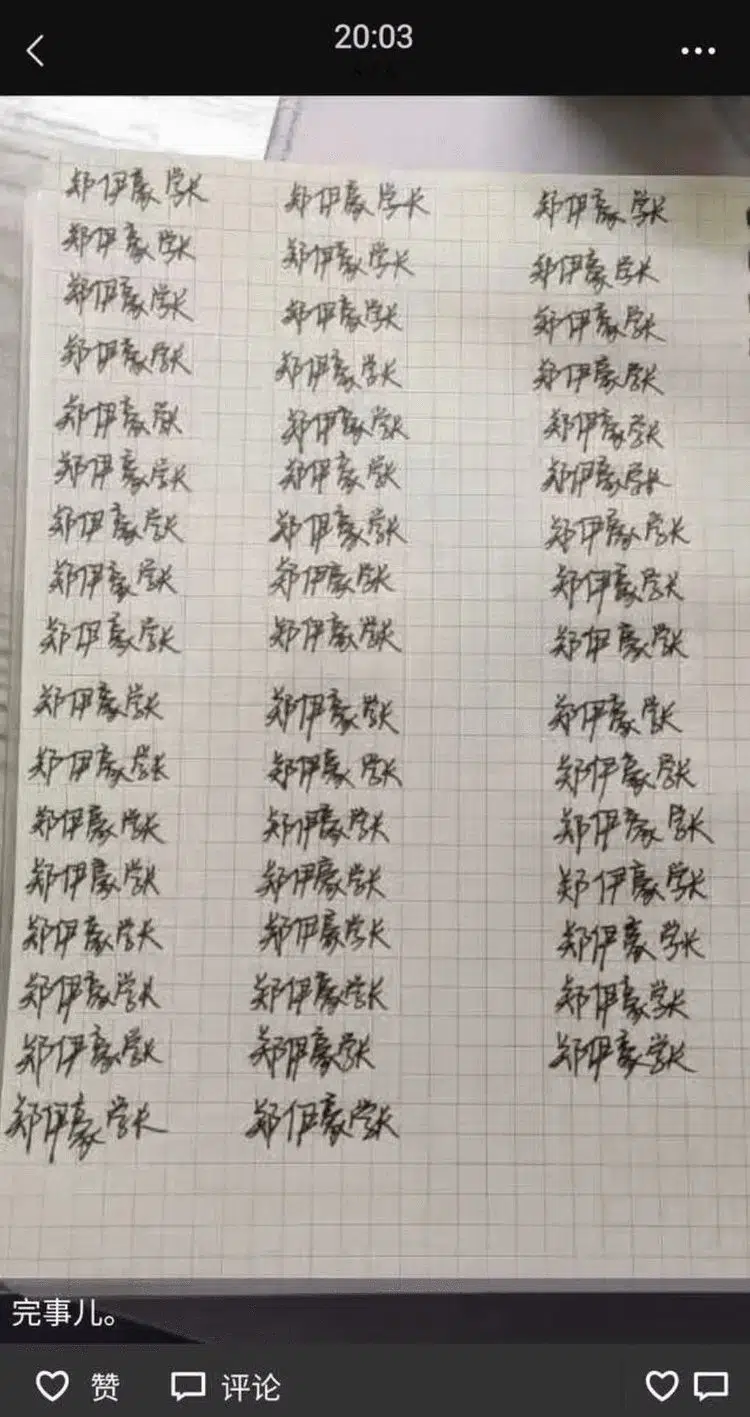 20:03
郑伊豪学长 郑伊豪学长 郑伊豪学长
郑伊豪学长 郑伊豪学长 郑伊豪学长
郑伊豪学长 郑伊豪学长 郑伊豪学长
郑伊豪学长 郑伊豪学长 郑伊豪学长
郑伊豪学长 郑伊豪学长 郑伊豪学长
郑伊豪学长 郑伊豪学长 郑伊豪学长
郑伊豪学长 郑伊豪学长 郑伊豪学长
郑伊豪学长 郑伊豪学长 郑伊豪学长
郑伊豪学长 郑伊豪学长 郑伊豪学长
郑伊豪学长 郑伊豪学长 郑伊豪学长
郑伊豪学长 郑伊豪学长 郑伊豪学长
郑伊豪学长 郑伊豪学长 郑伊豪学长
郑伊豪学长 郑伊豪学长 郑伊豪学长
郑伊豪学长 郑伊豪学长 郑伊豪学长
郑伊豪学长 郑伊豪学长 郑伊豪学长
郑伊豪学长 郑伊豪学长 郑伊豪学长
郑伊豪学长 郑伊豪学长
完事儿。
赞 评论